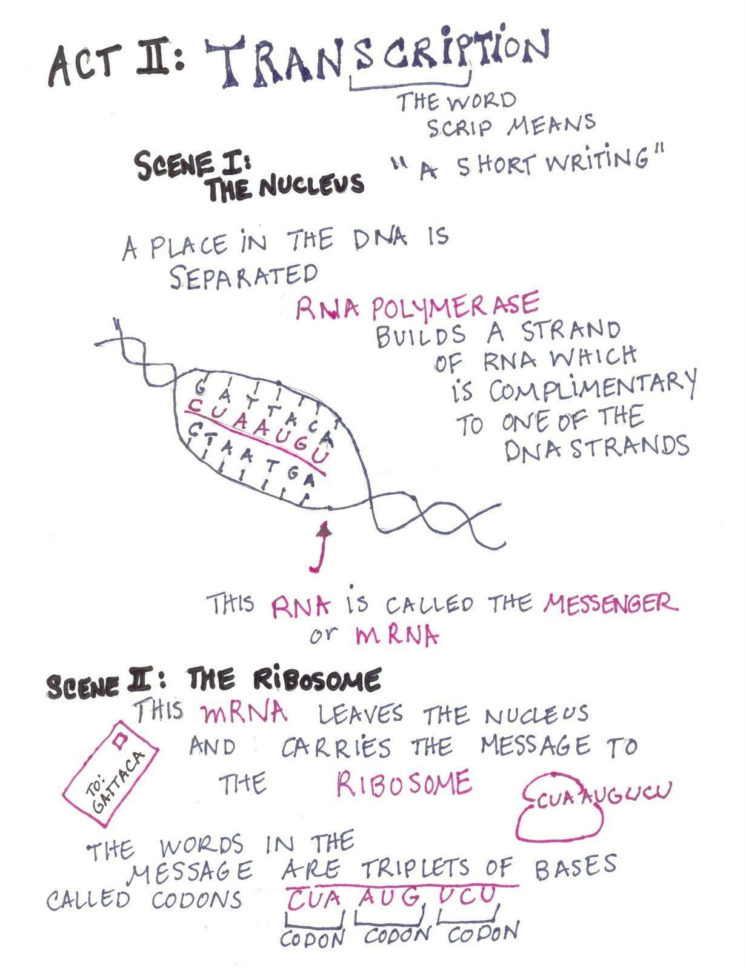 ACT II: TRANSCRIPTION
THE WORD
SCRIP MEANS
"A SHORT WRITING"
SCENE I:
THE NUCLEUS
A PLACE IN THE DNA IS
SEPARATED
RNA POLYMERASE
BUILDS A STRAND
OF RNA WHICH
IS COMPLIMENTARY
TO ONE OF THE
DNA STRANDS
GATTACA
CUAAUGU
CTAATGA
THIS RNA IS CALLED THE MESSENGER
or mRNA
SCENE II: THE RIBOSOME
THIS mRNA LEAVES THE NUCLEUS
AND CARRIES THE MESSAGE TO
THE RIBOSOME
TO:
GATTACA
CUAAUGUCU
THE WORDS IN THE
MESSAGE ARE TRIPLETS OF BASES
CALLED CODONS CUA AUG UCU
CODON CODON CODON